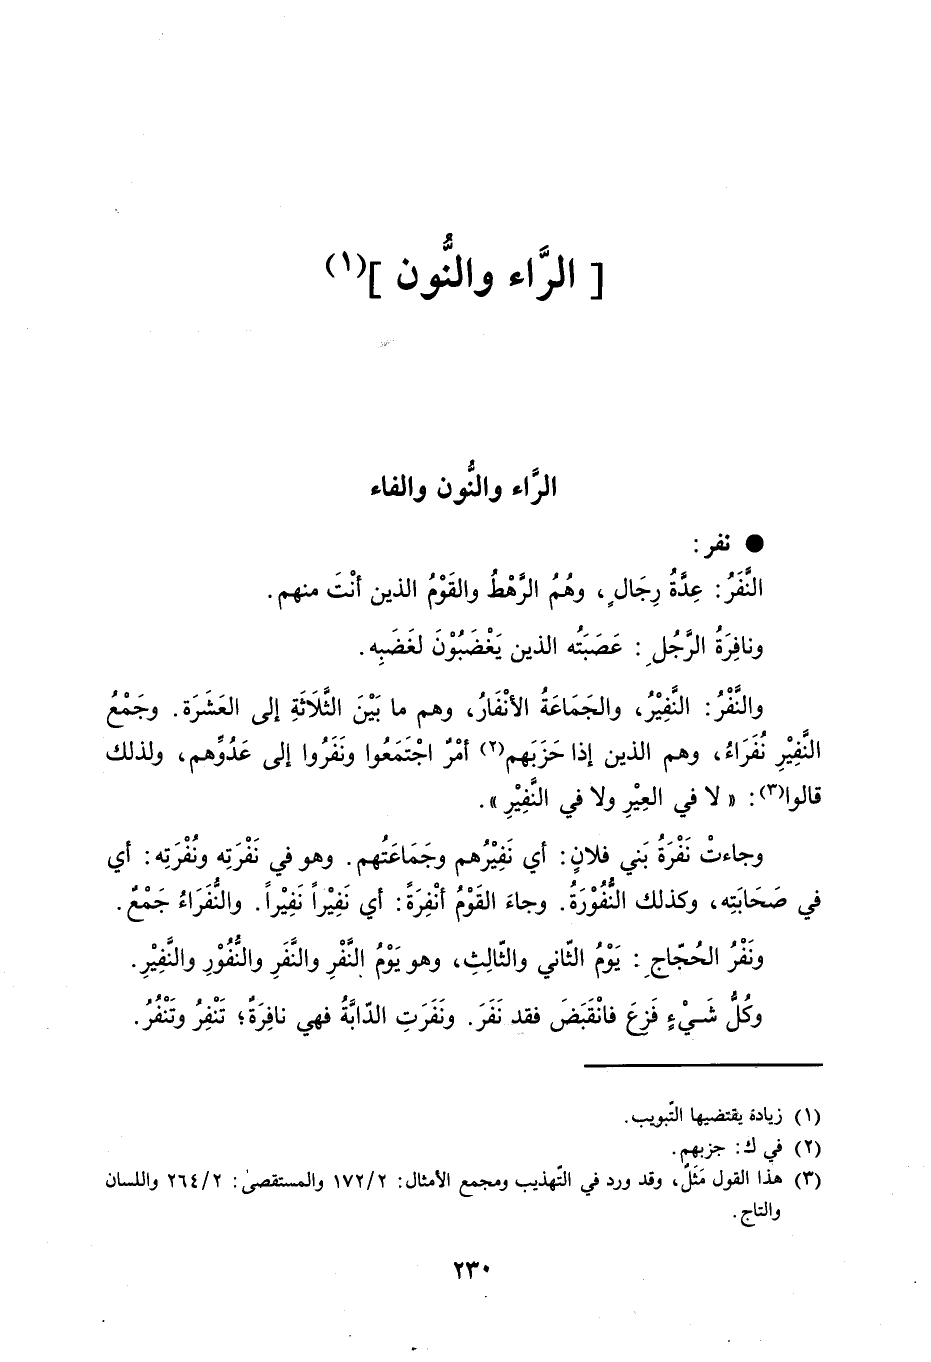 [ الرَّاء والنُّون ](١)
الرَّاء والنُّون والفاء
● نفر :
النَّفَرُ : عِدَّةُ رِجَالٍ ، وهُمُ الرَّهْطُ والقَوْمُ الذين أنْتَ منهم .
ونافِرَةُ الرَّجُلِ : عَصَبَتُه الذين يَغْضَبُوْنَ لغَضَبِه .
والنَّفْرُ : النَّفِيْرُ ، والجَمَاعَةُ الأنْفَارُ ، وهم ما بَيْنَ الثَّلَاثَةِ إلى العَشَرَة . وجَمْعُ
النَّفِيْرِ نُفَرَاءُ ، وهم الذين إذا حَزَبَهم(٢) أمْرٌ اجْتَمَعُوا ونَفَرُوا إلى عَدُوِّهم ، ولذلك
قالوا(٣) : « لا في العِيْرِ ولا في النَّفِيْرِ » .
وجاءتْ نَفْرَةُ بَني فلانٍ : أي نَفِيْرُهم وجَمَاعَتُهم . وهو في نَفْرَتِه ونُفْرَتِه : أي
في صَحَابَتِه ، وكذلك النُّفُوْرَةُ . وجاءَ القَوْمُ أنْفِرَةً : أي نَفِيْراً نَفِيْراً . والنُّفَرَاءُ جَمْعٌ .
ونَفْرُ الحُجّاجِ : يَوْمُ الثّاني والثّالِثِ ، وهو يَوْمُ النَّفْرِ والنَّفَرِ والنُّفُوْرِ والنَّفِيْرِ .
وكُلُّ شَيْءٍ فَزِعَ فانْقَبَضَ فقد نَفَرَ . ونَفَرَتِ الدّابَّةُ فهي نافِرَةٌ ؛ تَنْفِرُ وتَنْفُرُ .
(١) زيادة يقتضيها التّبويب .
(٢) في ك : جزبهم .
(٣) هذا القول مَثَلٌ ، وقد ورد في التّهذيب ومجمع الأمثال : ١٧٢/٢ والمستقصىٰ : ٢٦٤/٢ واللسان
والتاج .
٢٣٠